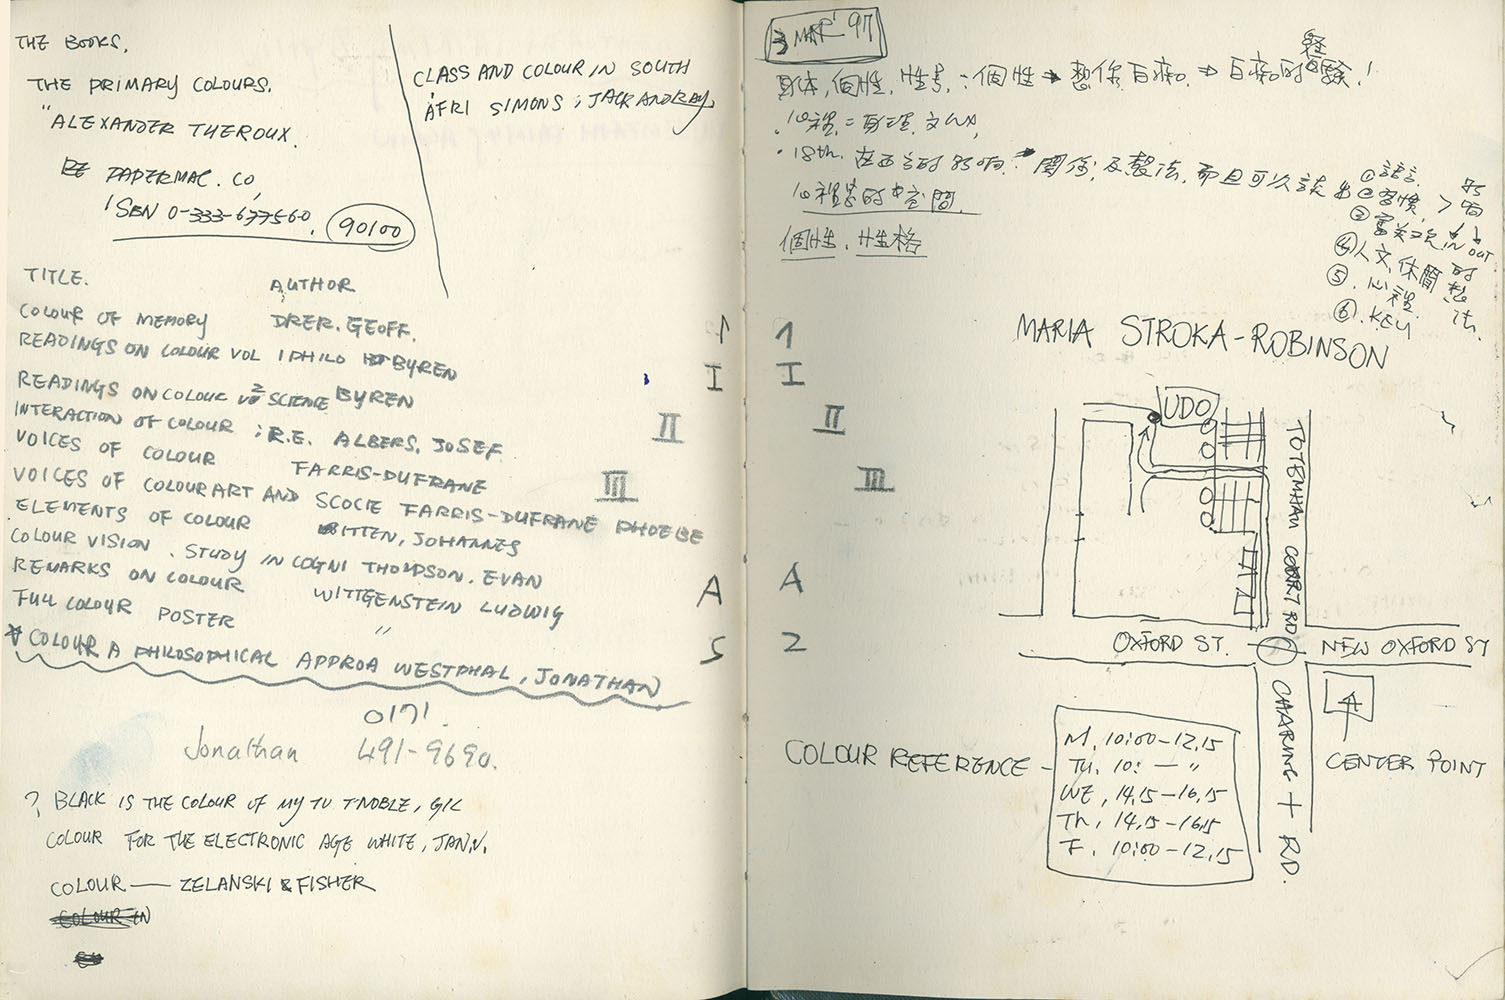 THE BOOKS.
THE PRIMARY COLOURS.
" ALEXANDER THEROUX.
PAPERMAC. CO,
ISBN 0-333-677560. 90100
CLASS AND COLOUR IN SOUTH
AFRI SIMONS ; JACK AND RAY
TITLE. AUTHOR
COLOUR OF MEMORY DRER. GEOFF. 1
READINGS ON COLOUR VOL 1 PHILO BYREN
READINGS ON COLOUR VO 2 SCIENCE BYREN I
INTERACTION OF COLOUR ; R.E. ALBERS, JOSEF II
VOICES OF COLOUR FARRIS-DUFRANE
VOICES OF COLOUR ART AND SCOCIE FARRIS-DUFRANE PHOEBE III
ELEMENTS OF COLOUR ITTEN, JOHANNES
COLOUR VISION . STUDY IN COGNI THOMPSON. EVAN
REMARKS ON COLOUR WITTGENSTEIN LUDWIG A
FULL COLOUR POSTER "
COLOUR A PHILOSOPHICAL APPROA WESTPHAL, JONATHAN 5
0171
Jonathan 491-9690.
? BLACK IS THE COLOUR OF MY TV TNOBLE, GIL
COLOUR FOR THE ELECTRONIC AGE WHITE, JAN.V.
COLOUR — ZELANSKI & FISHER
COLOUR IN
3 MAR' 97
身体, 個性, 性 ∴ 個性 → ⇒ 的經驗!
心理 = 文化
18th. 在 的影响 關係 及 整法, 而且可以 該
心理 的 空間
個性. 性格
① 語言
② 習慣 > 影响
③ IN OUT
④ 人文, 休閒 的
⑤ . 心理 想法
⑥ . KEY
MARIA STROKA-ROBINSON
1
I
II
III
A
2
UDO
TOTENHAM COURT RD
OXFORD ST. NEW OXFORD ST
CHARING + RD.
A
CENTER POINT
COLOUR REFERENCE —
M. 10:00-12.15
Tu. 10: — "
WE, 14.15-16.15
Th, 14.15-16.15
F. 10:00-12.15